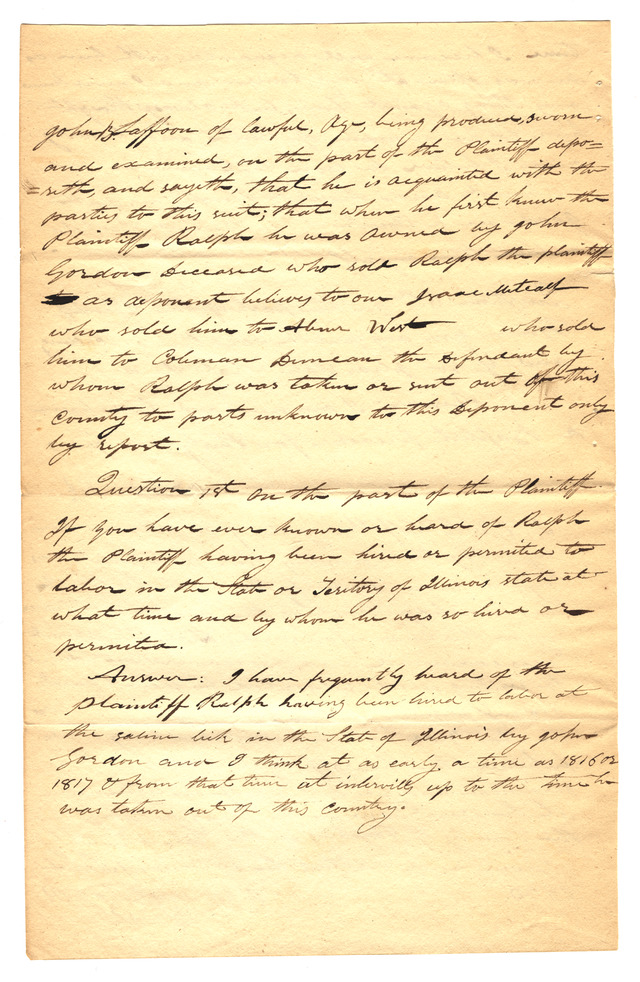 John B. Laffoon of lawful, Age, being produced, sworn
and examined, on the part of the Plaintiff depo=
=seth, and sayeth, that he is acquainted with the
parties to this suit; that when he first knew the
Plaintiff Ralph he was owned by John
Gordon Deceased who sold Ralph the plaintiff
as deponent believes to one Isaac Metcalf
who sold him to Abner West who sold
him to Coleman Duncan the defendant by
whom Ralph was taken or sent out of this
County to parts unknown to this Deponent only
by report.
Question 1st on the part of the Plaintiff.
If you have ever known or heard of Ralph
the Plaintiff having been hired or permited to
labor in the State or Teritory of Illinois state at
what time and by whom he was so hired or
permited.
Answer: I have frequently heard of the
plaintiff Ralph having been hired to labor at
the saline lick in the State of Illinois by John
Gordon and I think at as early a time as 1816 or
1817 & from that time at intervills up to the time he
was taken out of this Country.